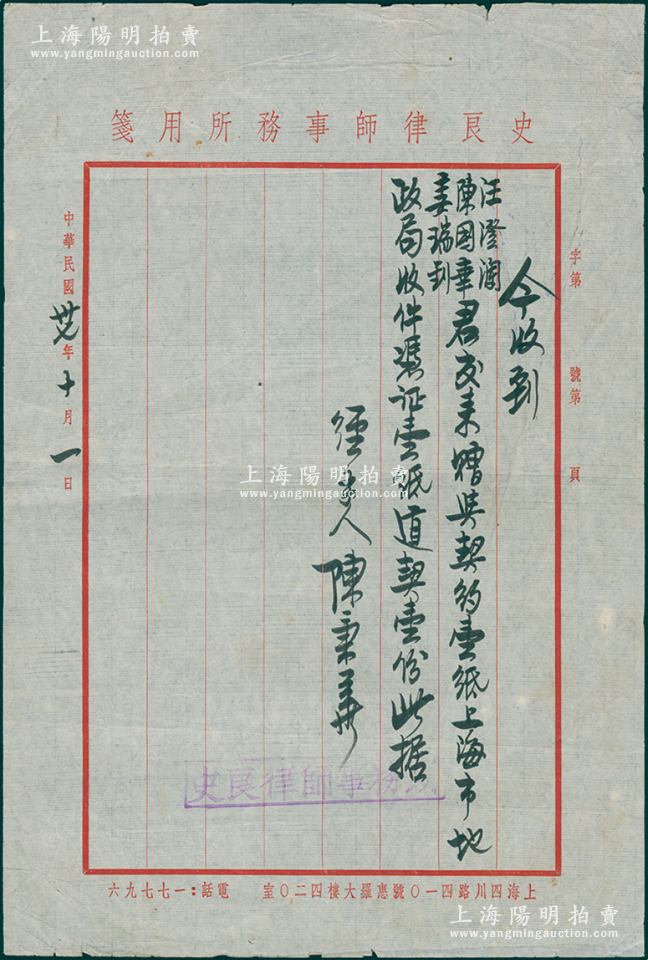 上海陽明拍賣
www.yangmingauction.com
史良律師事務所用箋
字第 號第 頁
今收到
汪澄瀾
陳國華
姜瑞釗
君交来贈與契約壹紙上海市地
政局收件憑证壹紙道契壹份此据
經手人 陳秉華
中華民國卅七年十月一日
史良律師事務所
上海四川路四一〇號惠羅大樓四二〇室 電話：一七七九六
上海陽明拍賣
www.yangmingauction.com
上海陽明拍賣
www.yangmingauction.com